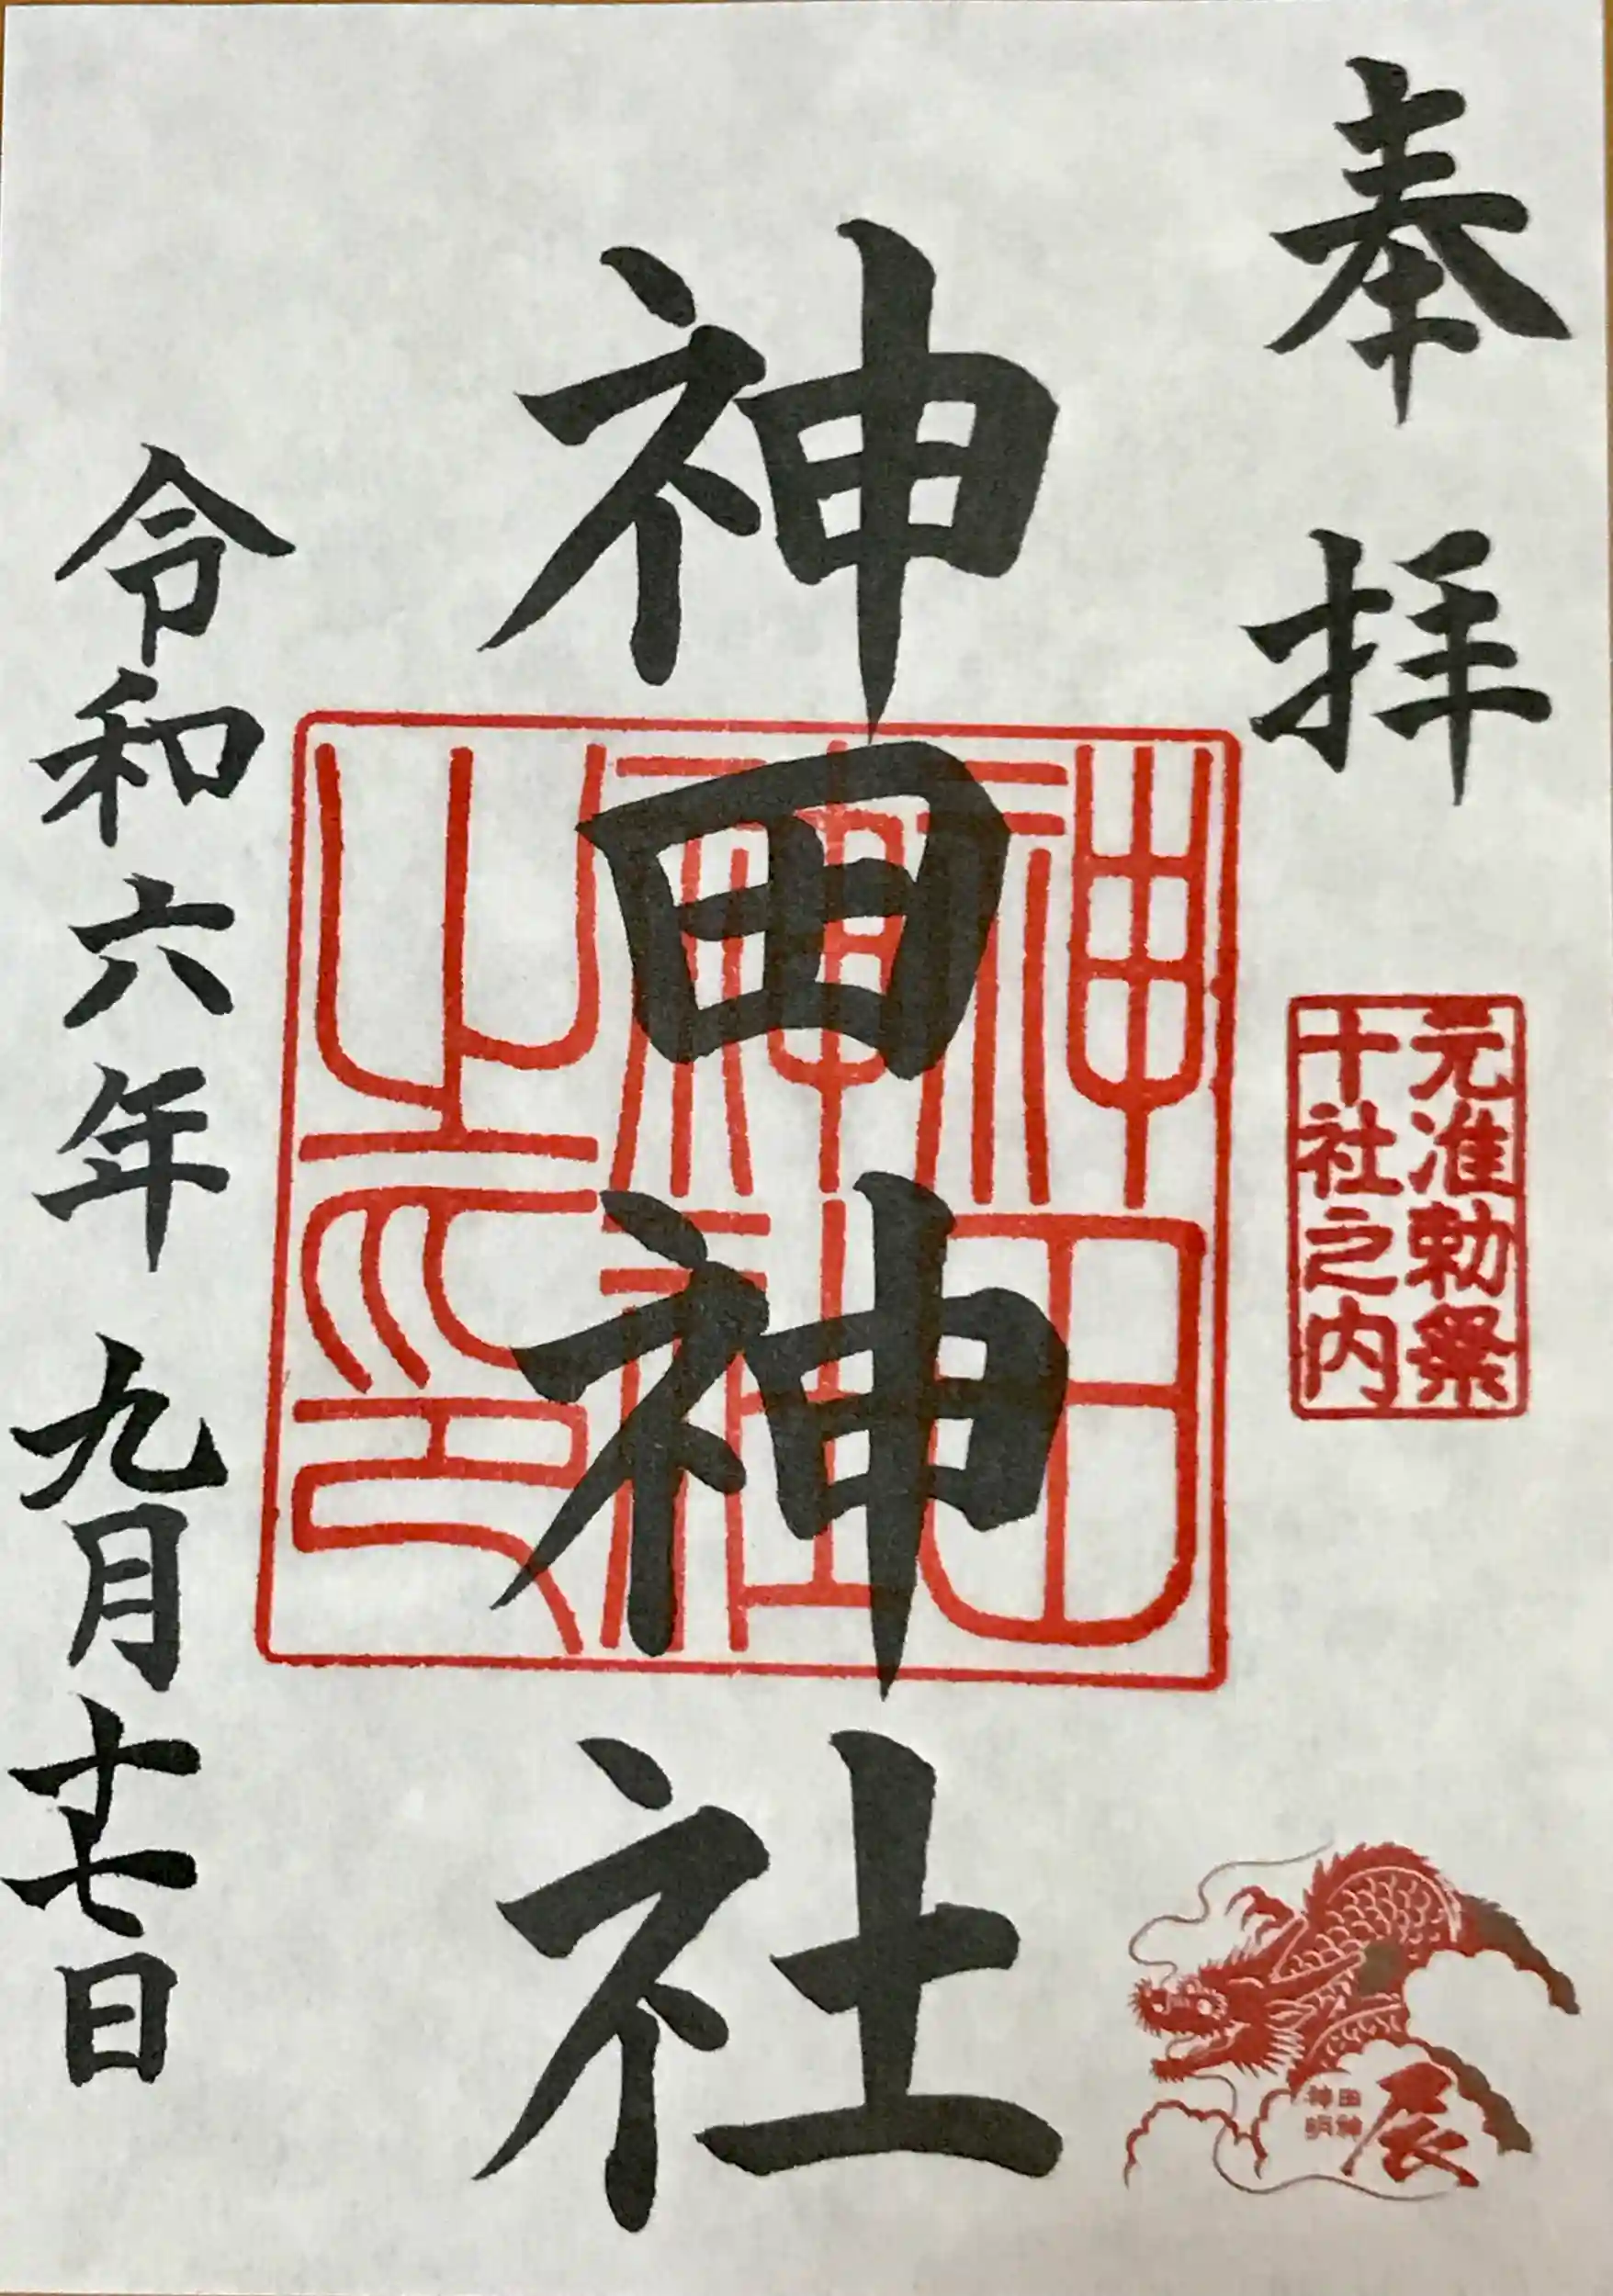 奉拝
元准勅祭
十社之内
神田神社
神田
神社
之印
辰
令和六年 九月十七日